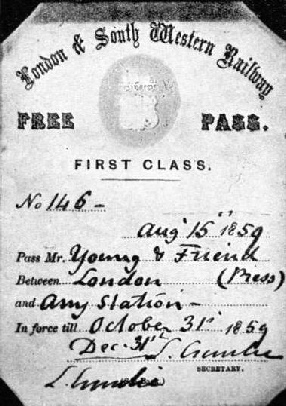 London & South Western Railway.
FREE PASS.
FIRST CLASS.
No 146 -
Aug 15" 1859
Pass Mr. Young & Friend
Between London (Press)
and Any Station -
In force till October 31st 1859
Dec. 31st
SECRETARY.